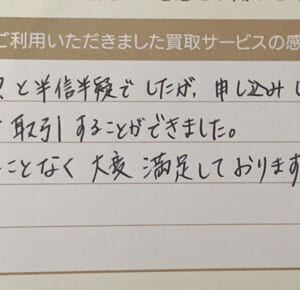 ご利用いただきました買取サービスの感
と半信半疑でしたが、申し込みし
取引することができました。
ことなく大変満足しております